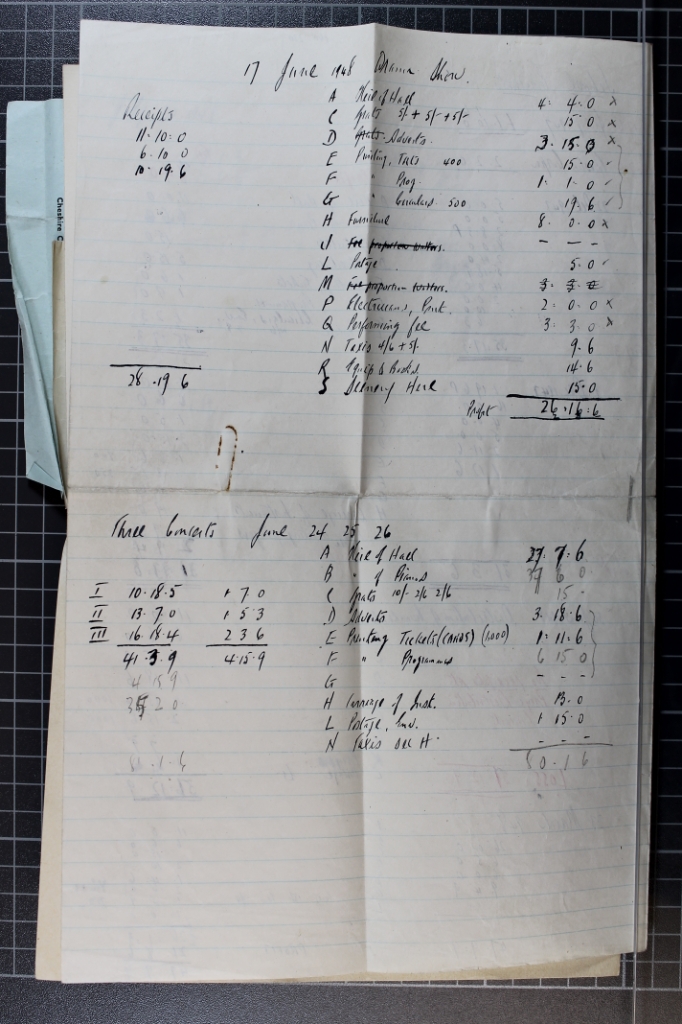 17 June 1948 Drama Show.
Receipts
11. 10. 0
6. 10 0
10. 19. 6
28. 19 6
A Hire of Hall 4. 4. 0 x
C Grats 5/- + 5/- + 5/- 15. 0 x
D Adverts. 3. 15. 0 x
E Printing, Tkts 400 15. 0 ✓
F " Prog. 1. 1. 0 ✓
G " Circulars 500 19. 6 ✓
H Furniture 8. 0. 0 x
J — — —
L Postage 5. 0 ✓
M
P Electricians, 2. 0. 0 x
Q Performing fee 3. 3. 0 x
N Taxis 4/6 + 5/- 9. 6
R 14. 6
S Hire 15. 0
Profit 26. 16. 6
Cheshire C
Three Concerts June 24 25 26
I 10. 18. 5 1 7 0
II 13. 7. 0 1 5. 3
III 16. 18. 4 2 3 6
41. 3. 9 4. 15. 9
4 15 9
A Hire of Hall 27. 7. 6
B " of Pianos 6 0
C Grats 10/- 2/6 2/6 15 -
D Adverts 3. 18. 6
E Printing Tickets (CARDS) (1,000) 1. 11. 6
F " Programmes 6 15 0
G — — —
H Carriage of Inst. 13. 0
L Postage, 1 15. 0
N Taxis see H. — — —
50. 1 6